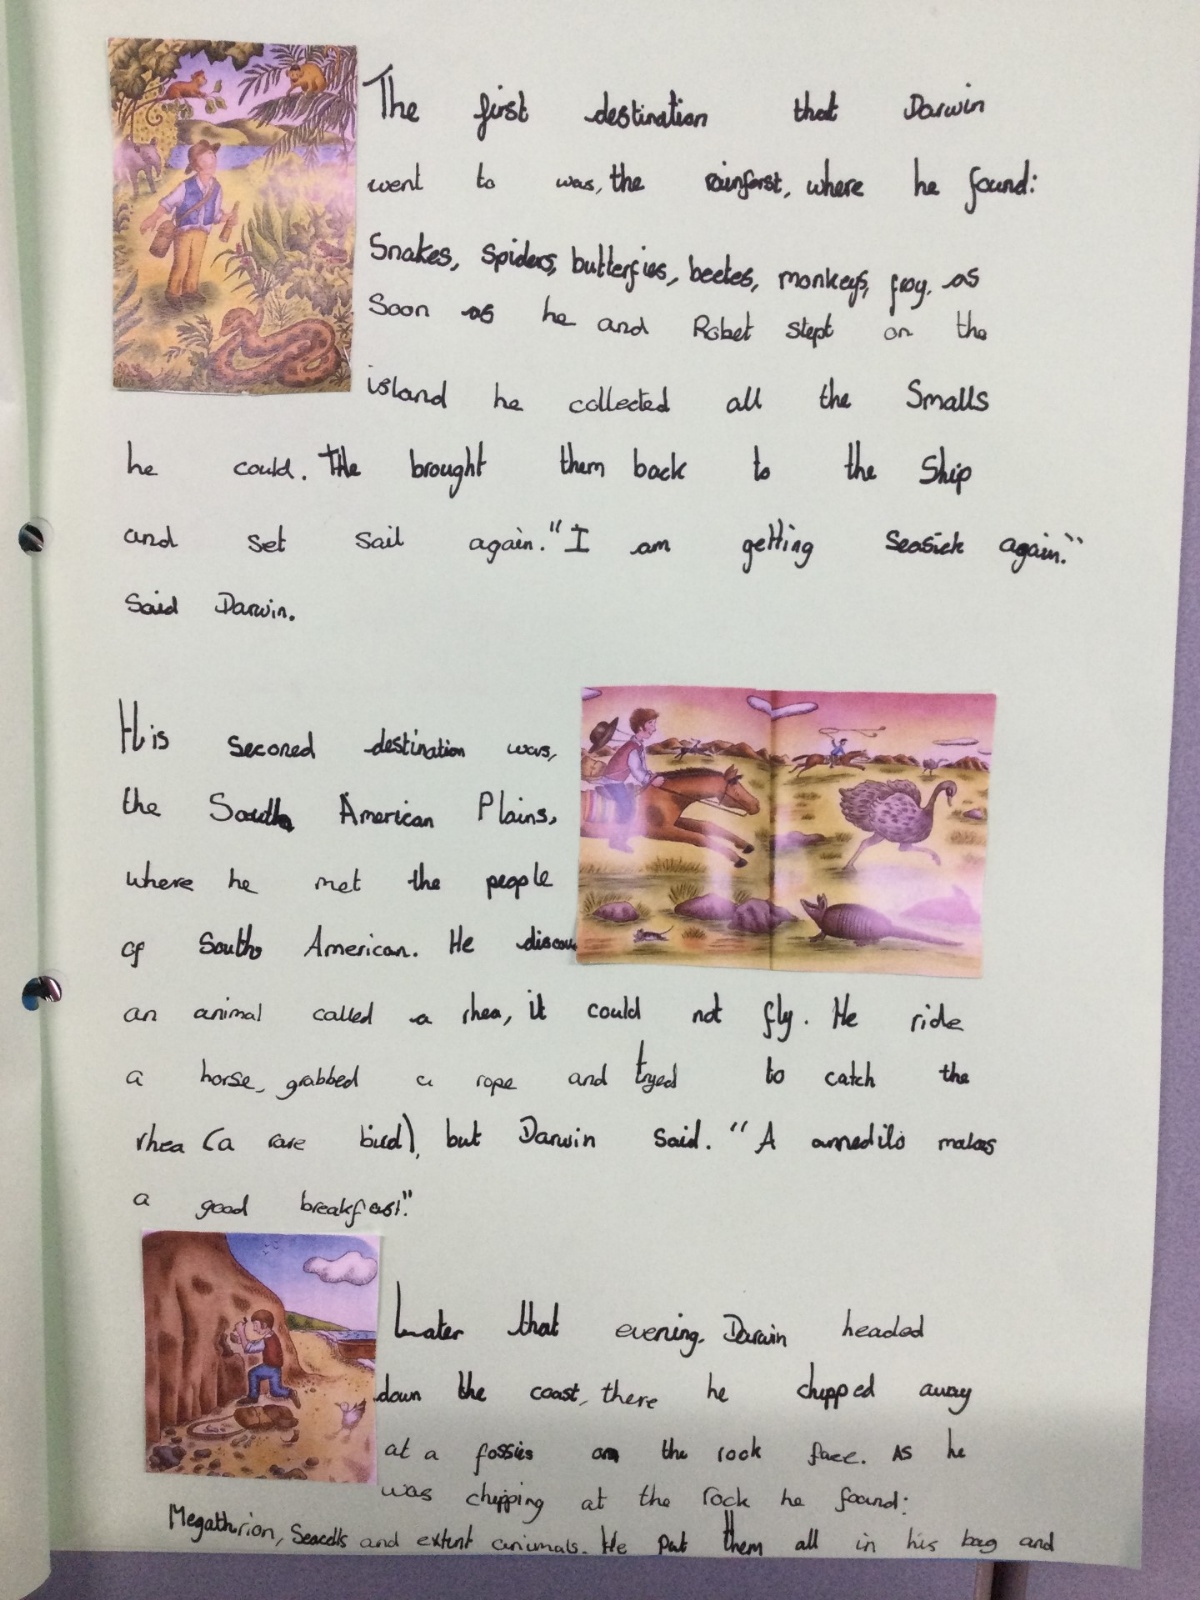 The first destination that Darwin
went to was, the rainforst, where he found:
Snakes, spiders, butterfies, beetes, monkeys, frog. as
Soon as he and Robet stept on the
island he collected all the Smalls
he could. He brought them back to the Ship
and set sail again. "I am getting seasick again."
Said Darwin.
His seconed destination was,
the South American Plains,
where he met the people
of South American. He discou
an animal called a rhea, it could not fly. He ride
a horse, grabbed a rope and tryed to catch the
rhea (a rare bird), but Darwin said. "A armedilo makes
a good breakfast."
Later that evening. Darwin headed
down the coast, there he chipped away
at a fossies on the rock face. As he
was chipping at the rock he found:
Megathrion, and extent animals. He put them all in his bag and